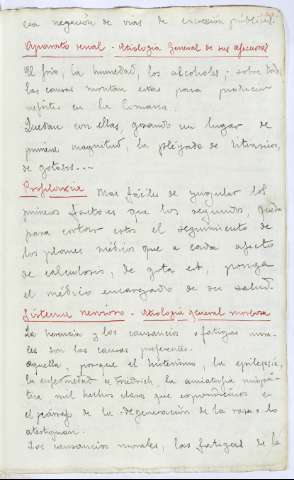 esa negación de vías de excreción pública.
Aparato renal - Etiología general de sus afecciones
El frío, la humedad, los alcoholes; sobre todo
las causas montan estas para producir
nefritis en la Comarca.
Quedan con ellas, gozando un lugar de
primera magnitud, la pléyade de litiasicos,
de gotosos...
Profilaxia Mas fáciles de yugular los
primeros factores que los segundos, queda
para cortar estos el seguimiento de
los planes médicos que a cada afecto
de calculosis, de gota etc, ponga
el médico encargado de su salud.
Sistema nervioso - Etiología general morbosa
La herencia y los causancios y fatigas mora-
les son las causas preferentes.
Aquella, porque el histerismo, la epilepsia,
la enfermedad de Friedrich, la amiotrofia miopá-
tica mil hechos claros que expondremos en
el párrafo de la degeneración de la raza lo
atestiguan.
Los causancios morales, las fatigas de la